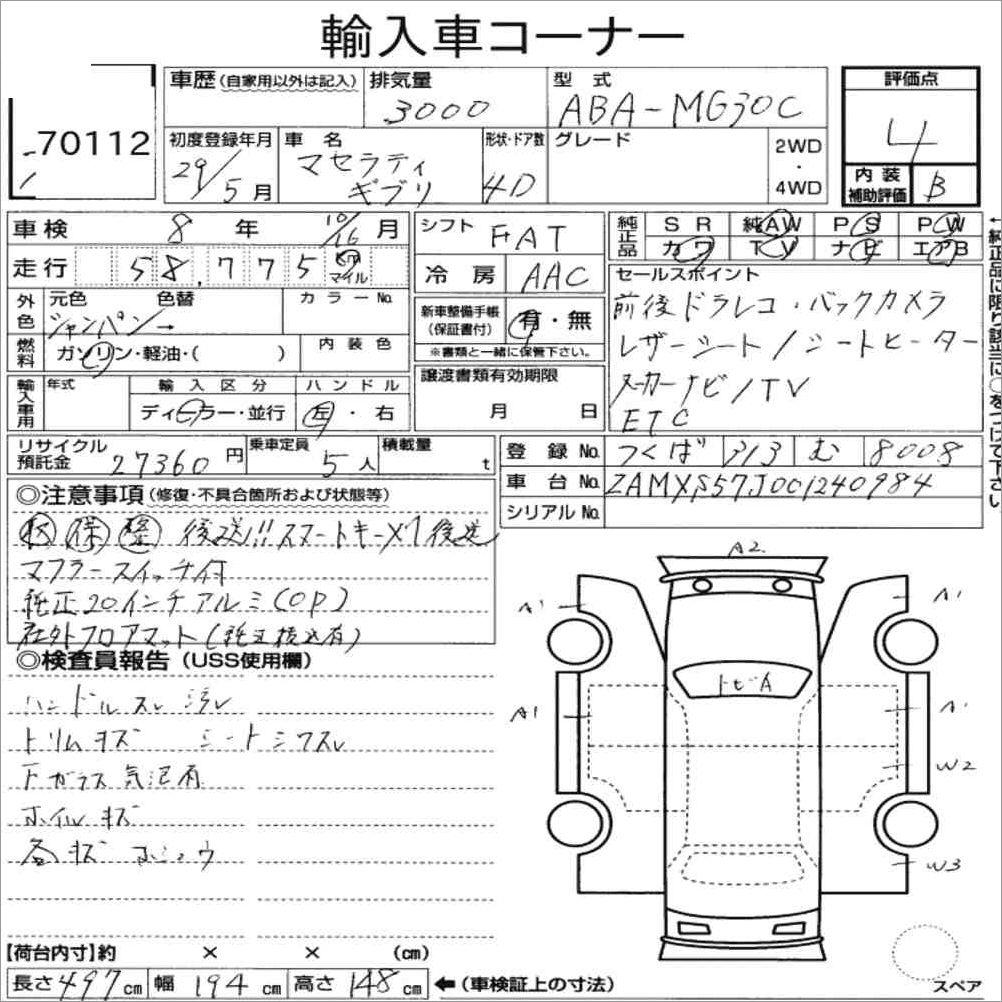 輸入車コーナー
70112
車歴 (自家用以外は記入)
排気量
3000
型式
ABA-MG30C
評価点
4
内装補助評価 B
初度登録年月
29/5月
車名
マセラティ
ギブリ
形状・ドア数
4D
グレード
2WD
・
4WD
車検 8年 10/16月
走行 58,775 km マイル
シフト FAT
冷房 AAC
純正品
SR 純AW PS PW
カワ TV ナビ エアB
←純正品に限り該当に○をつけて下さい
外色
元色 色替
シャンパン→
カラーNo.
燃料
ガソリン・軽油・( )
内装色
新車整備手帳 (保証書付) 有・無
※書類と一緒に保管下さい。
セールスポイント
前後ドラレコ・バックカメラ
レザーシート/シートヒーター
メーカーナビ/TV
ETC
輸入車用
年式
輸入区分
ディーラー・並行
ハンドル
左・右
譲渡書類有効期限
月 日
リサイクル預託金 27360円
乗車定員 5人
積載量 t
登録No. つくば 313 む 8008
車台No. ZAMXS57J001240984
シリアルNo.
◎注意事項 (修復・不具合箇所および状態等)
保 整 後送!!スマートキーX1後送
マフラースイッチ付
純正20インチアルミ(OP)
社外フロアマット(純正積込有)
◎検査員報告 (USS使用欄)
ハンドルスレ 汚レ
トリムキズ シートシワスレ
Fガラス気泡有
ホイルキズ
各キズ ホシュウ
A2
A1
A1
トビA
A1
A1
W2
W3
【荷台内寸】約 × × (cm)
長さ497cm 幅194cm 高さ148cm ←(車検証上の寸法)
スペア